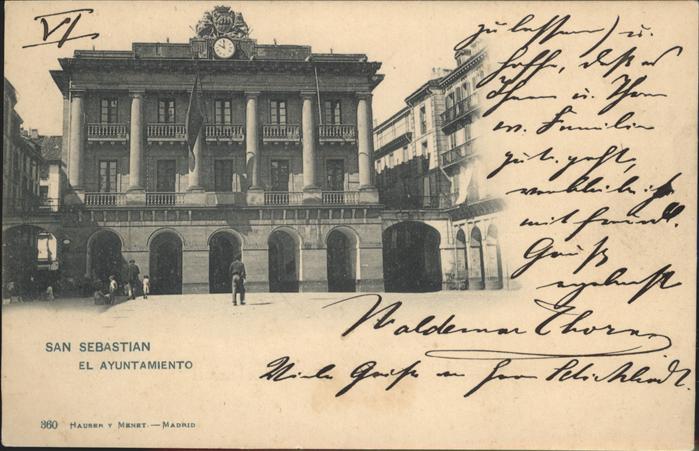 VI
zu lassen) u.
hoffe, daß es
Ihnen u. Ihrer
w. Familie
gut geht,
verbleibe ich
mit freundl.
Gruß
ergebenst
Waldemar Thorn
Viele Grüße an
SAN SEBASTIAN
EL AYUNTAMIENTO
360 HAUSER Y MENET.—MADRID